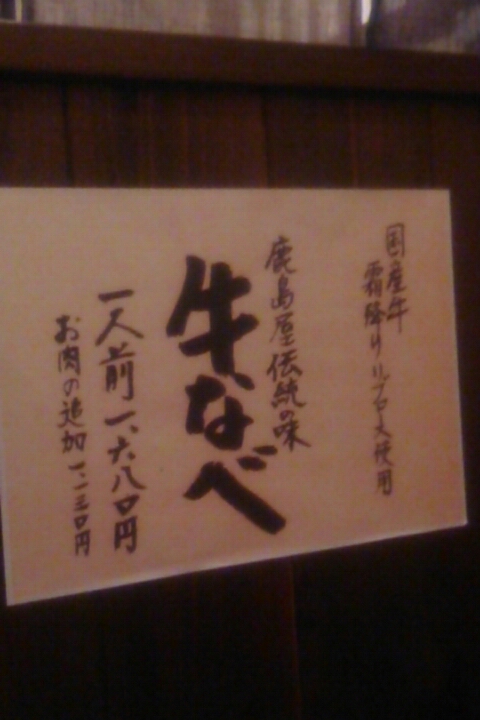 国産牛
霜降りリブロース使用
鹿島屋伝統の味
牛なべ
一人前一、六八〇円
お肉の追加一、一三〇円